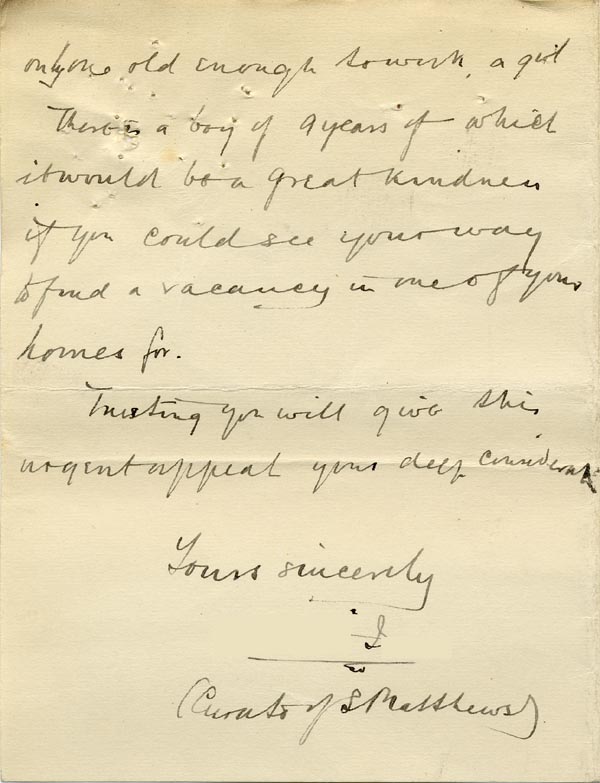 only one old enough to work, a girl
There is a boy of 9 years of which
it would be a great kindness
if you could see your way
to find a vacancy in one of your
homes for.
Trusting you will give this
urgent appeal your deep considerat
Yours sincerely
(Curate of S Matthews)